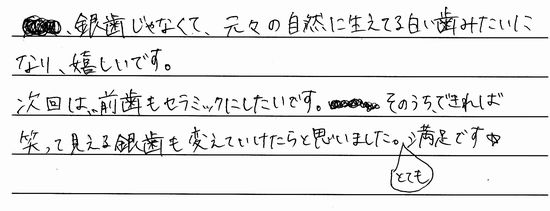 、銀歯じゃなくて、元々の自然に生えてる白い歯みたいに
なり、嬉しいです。
次回は、前歯もセラミックにしたいです。そのうち、できれば
笑って見える銀歯も変えていけたらと思いました。満足です☆
とても